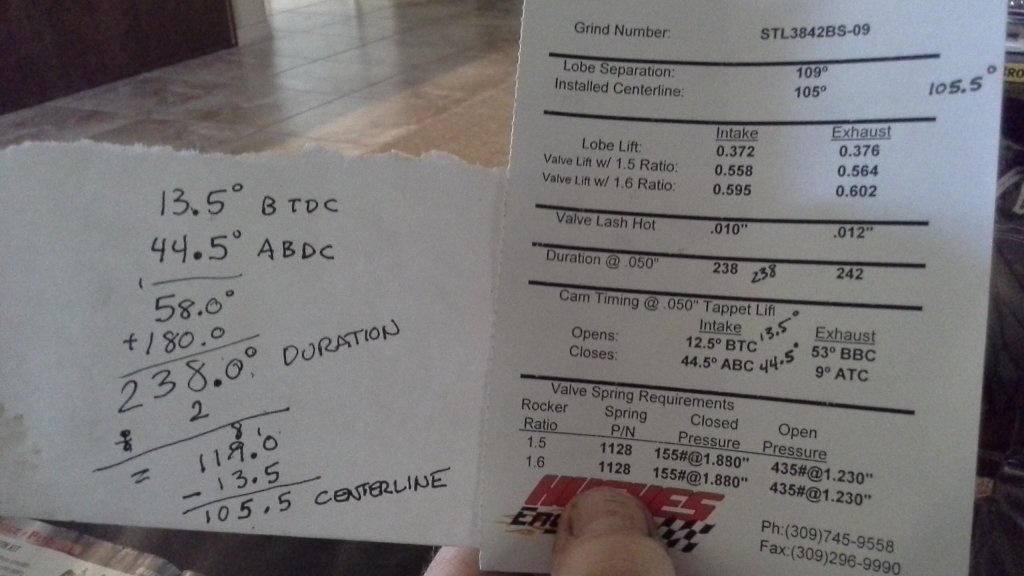 13.5° BTDC
44.5° ABDC
1
58.0°
+180.0
238.0° DURATION
÷ 2
= 119.0
8 1
- 13.5
105.5 CENTERLINE
Grind Number: STL3842BS-09
Lobe Separation: 109°
Installed Centerline: 105° 105.5°
Intake Exhaust
Lobe Lift: 0.372 0.376
Valve Lift w/ 1.5 Ratio: 0.558 0.564
Valve Lift w/ 1.6 Ratio: 0.595 0.602
Valve Lash Hot .010" .012"
Duration @ .050" 238 238 242
Cam Timing @ .050" Tappet Lift
Intake Exhaust
Opens: 12.5° BTC 13.5° 53° BBC
Closes: 44.5° ABC 44.5° 9° ATC
Valve Spring Requirements
Rocker Ratio Spring P/N Closed Pressure Open Pressure
1.5 1128 155#@1.880" 435#@1.230"
1.6 1128 155#@1.880" 435#@1.230"
HUGHES
Ph:(309)745-9558
Fax:(309)296-9990